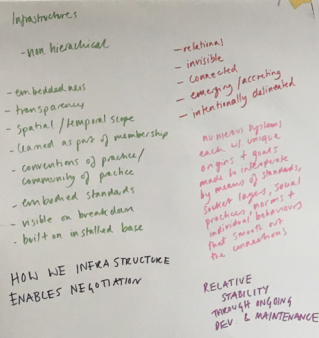 Infrastructures
- non hierarchical
- embeddedness
- transparency
- spatial/temporal scope
- learned as part of membership
- conventions of practice/
community of practice
- embodied standards
- visible on breakdown
- built on installed base
HOW WE INFRASTRUCTURE
ENABLES NEGOTIATION
- relational
- invisible
- connected
- emerging/accreting
- intentionally delineated
numerous systems
each w/ unique
origins + goals
made to interoperate
by means of standards,
socket layers, social
practices, norms +
individual behaviours
that smooth out
the connections
RELATIVE
STABILITY
THROUGH ONGOING
DEV & MAINTENANCE